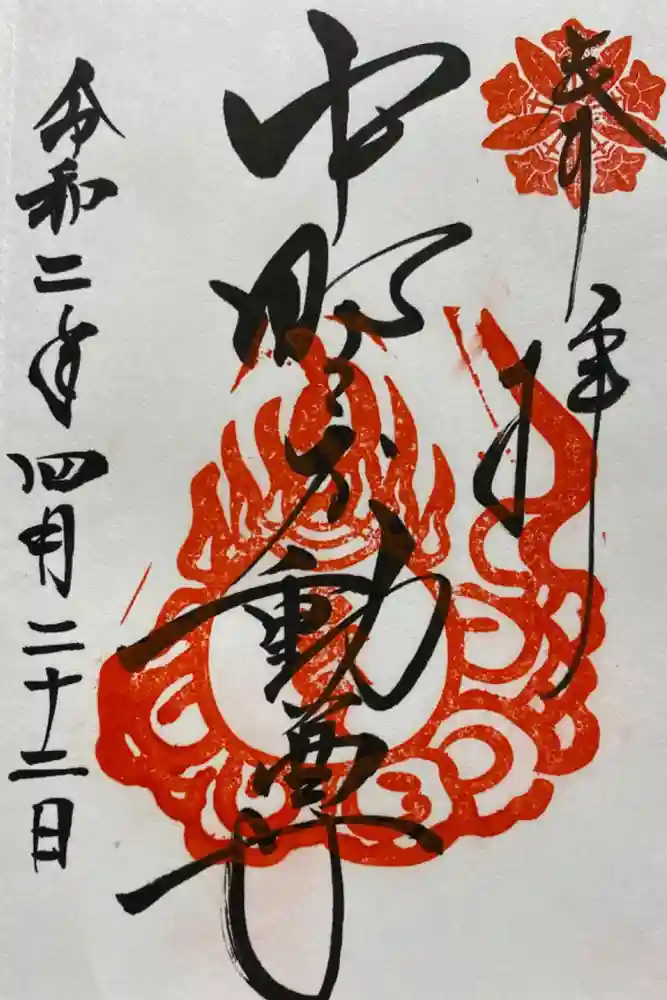 奉拝
中野不動尊
令和二年四月二十二日